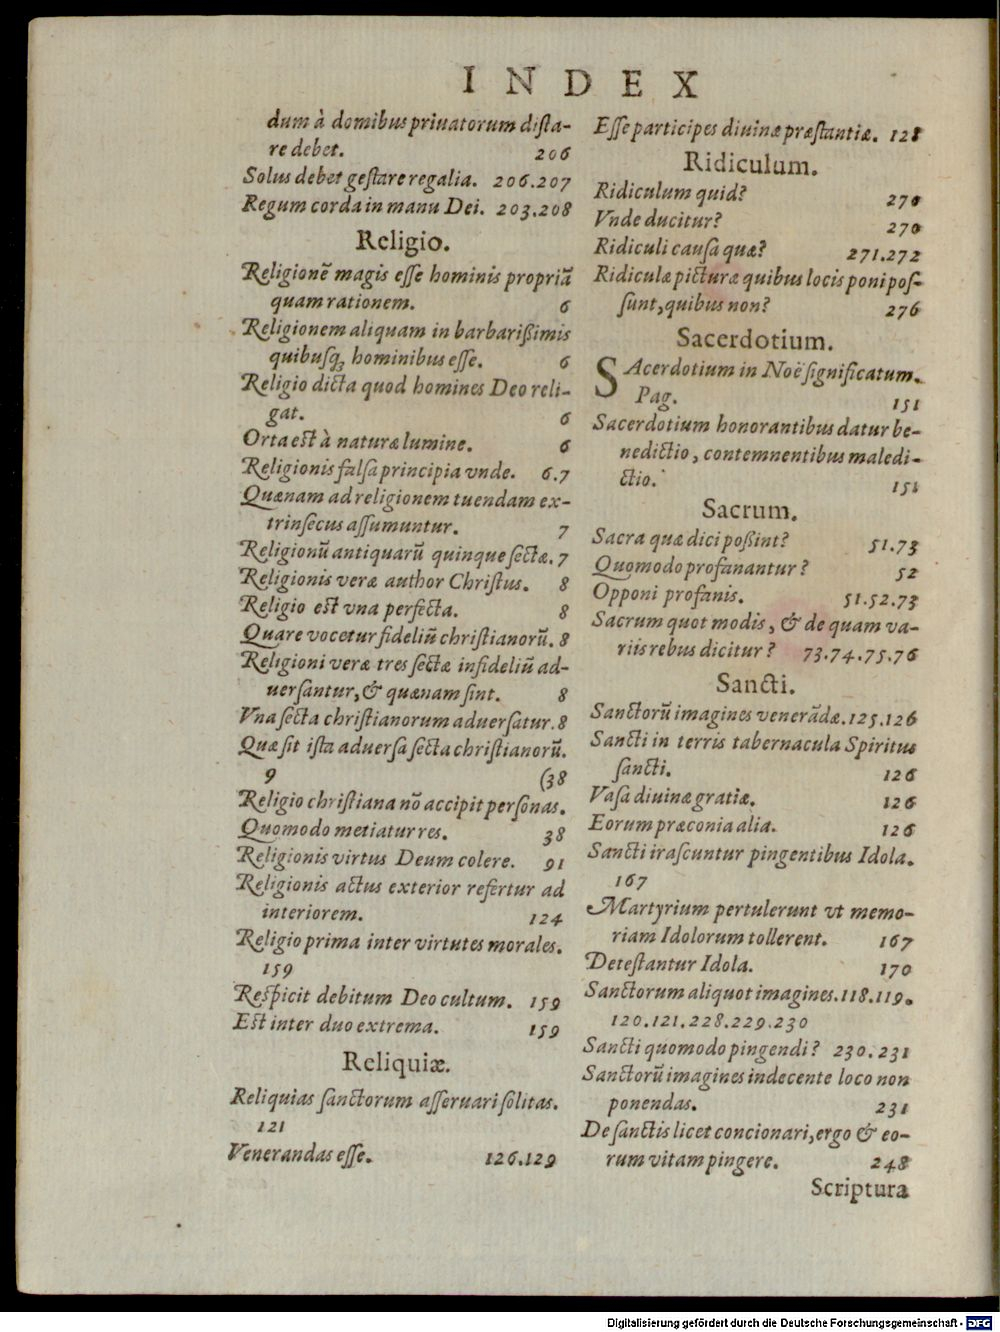 INDEX
dum à domibus priuatorum dista-
re debet. 206
Solus debet gestare regalia. 206.207
Regum corda in manu Dei. 203.208
Religio.
Religionẽ magis esse hominis propriã
quam rationem. 6
Religionem aliquam in barbarißimis
quibusq; hominibus esse. 6
Religio dicta quod homines Deo reli-
gat. 6
Orta est à naturæ lumine. 6
Religionis falsa principia vnde. 6.7
Quænam ad religionem tuendam ex-
trinsecus assumuntur. 7
Religionũ antiquarũ quinque sectæ. 7
Religionis veræ author Christus. 8
Religio est vna perfecta. 8
Quare vocetur fideliũ christianorũ. 8
Religioni veræ tres sectæ infideliũ ad-
uersantur, & quænam sint. 8
Vna secta christianorum aduersatur. 8
Quæ sit ista aduersa secta christianorũ.
9 (38
Religio christiana nõ accipit personas.
Quomodo metiatur res. 38
Religionis virtus Deum colere. 91
Religionis actus exterior refertur ad
interiorem. 124
Religio prima inter virtutes morales.
159
Respicit debitum Deo cultum. 159
Est inter duo extrema. 159
Reliquiæ.
Reliquias sanctorum asseruari solitas.
121
Venerandas esse. 126.129
Esse participes diuinæ præstantiæ. 128
Ridiculum.
Ridiculum quid? 270
Vnde ducitur? 270
Ridiculi causa quæ? 271.272
Ridiculæ picturæ quibus locis poni pos-
sunt, quibus non? 276
Sacerdotium.
SAcerdotium in Noë significatum.
Pag. 151
Sacerdotium honorantibus datur be-
nedictio, contemnentibus maledi-
ctio. 151
Sacrum.
Sacra quæ dici poßint? 51.73
Quomodo profanantur? 52
Opponi profanis. 51.52.73
Sacrum quot modis, & de quam va-
riis rebus dicitur? 73.74.75.76
Sancti.
Sanctorũ imagines venerãdæ. 125.126
Sancti in terris tabernacula Spiritus
sancti. 126
Vasa diuinæ gratiæ. 126
Eorum præconia alia. 126
Sancti irascuntur pingentibus Idola.
167
Martyrium pertulerunt vt memo-
riam Idolorum tollerent. 167
Detestantur Idola. 170
Sanctorum aliquot imagines. 118.119.
120.121.228.229.230
Sancti quomodo pingendi? 230.231
Sanctorũ imagines indecente loco non
ponendas. 231
De sanctis licet concionari, ergo & eo-
rum vitam pingere. 248
Scriptura
Digitalisierung gefördert durch die Deutsche Forschungsgemeinschaft - DFG